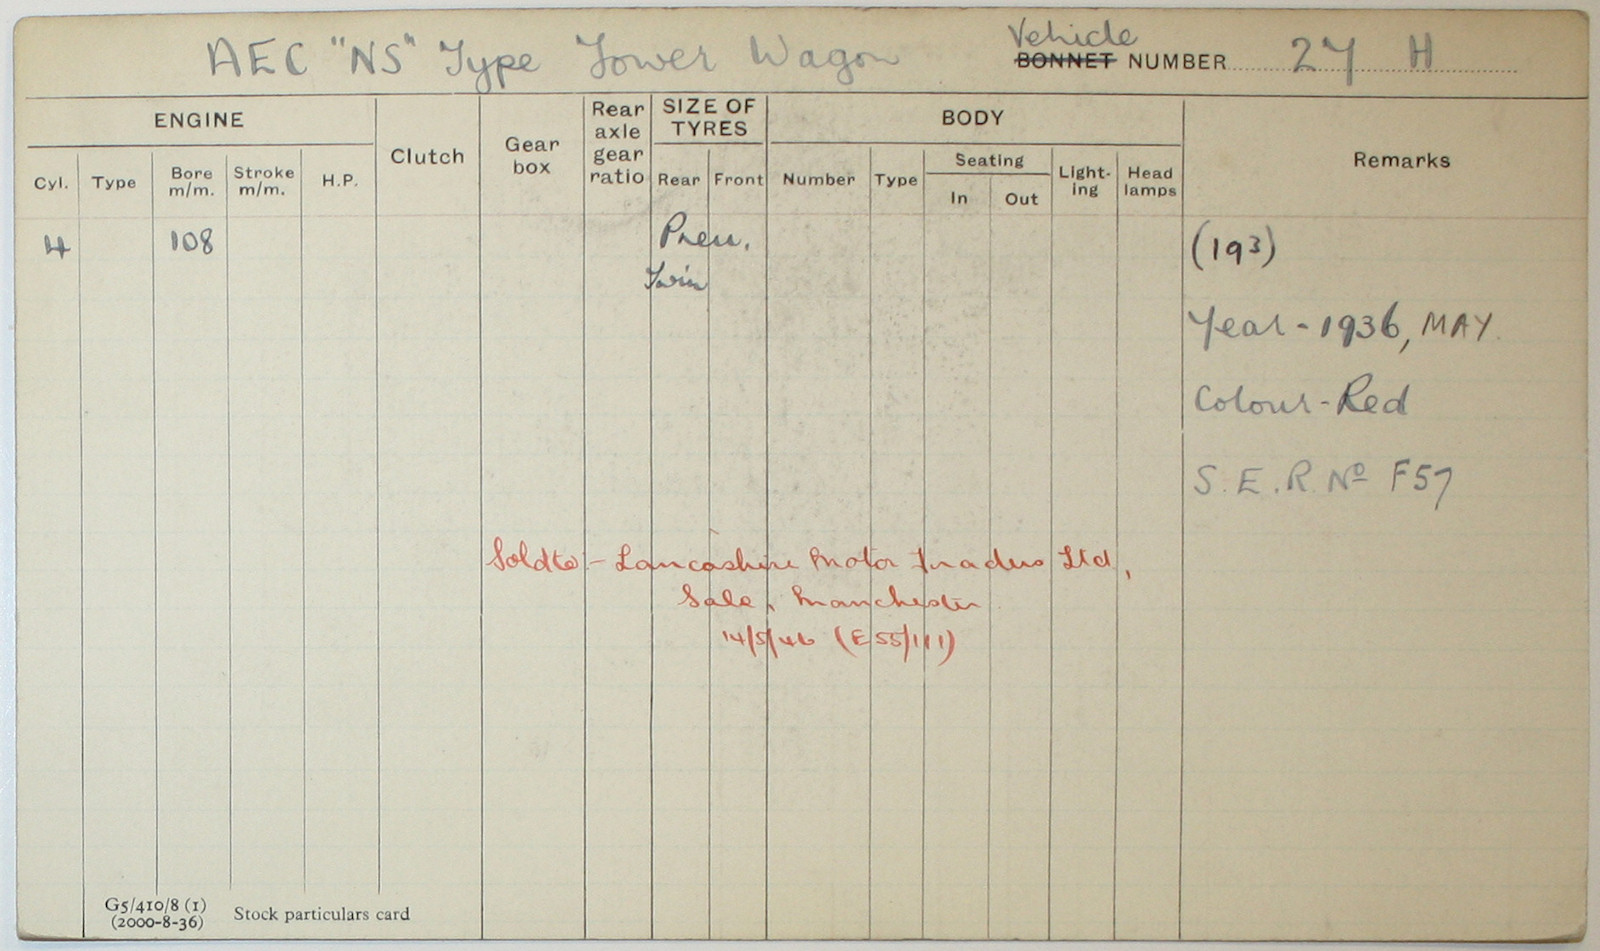 AEC "NS" Type Tower Wagon
Vehicle
BONNET NUMBER 27 H
ENGINE
Clutch
Gear box
Rear axle gear ratio
SIZE OF TYRES
BODY
Remarks
Cyl.
Type
Bore m/m.
Stroke m/m.
H.P.
Rear
Front
Number
Type
Seating
In
Out
Light-ing
Head lamps
4
108
Pneu.
Twin
(193)
Year - 1936, MAY.
Colour - Red
S.E.R. Nº F57
Sold to - Lancashire Motor Traders Ltd,
Sale, Manchester
14/5/46 (E55/111)
G5/410/8 (1)
(2000-8-36)
Stock particulars card